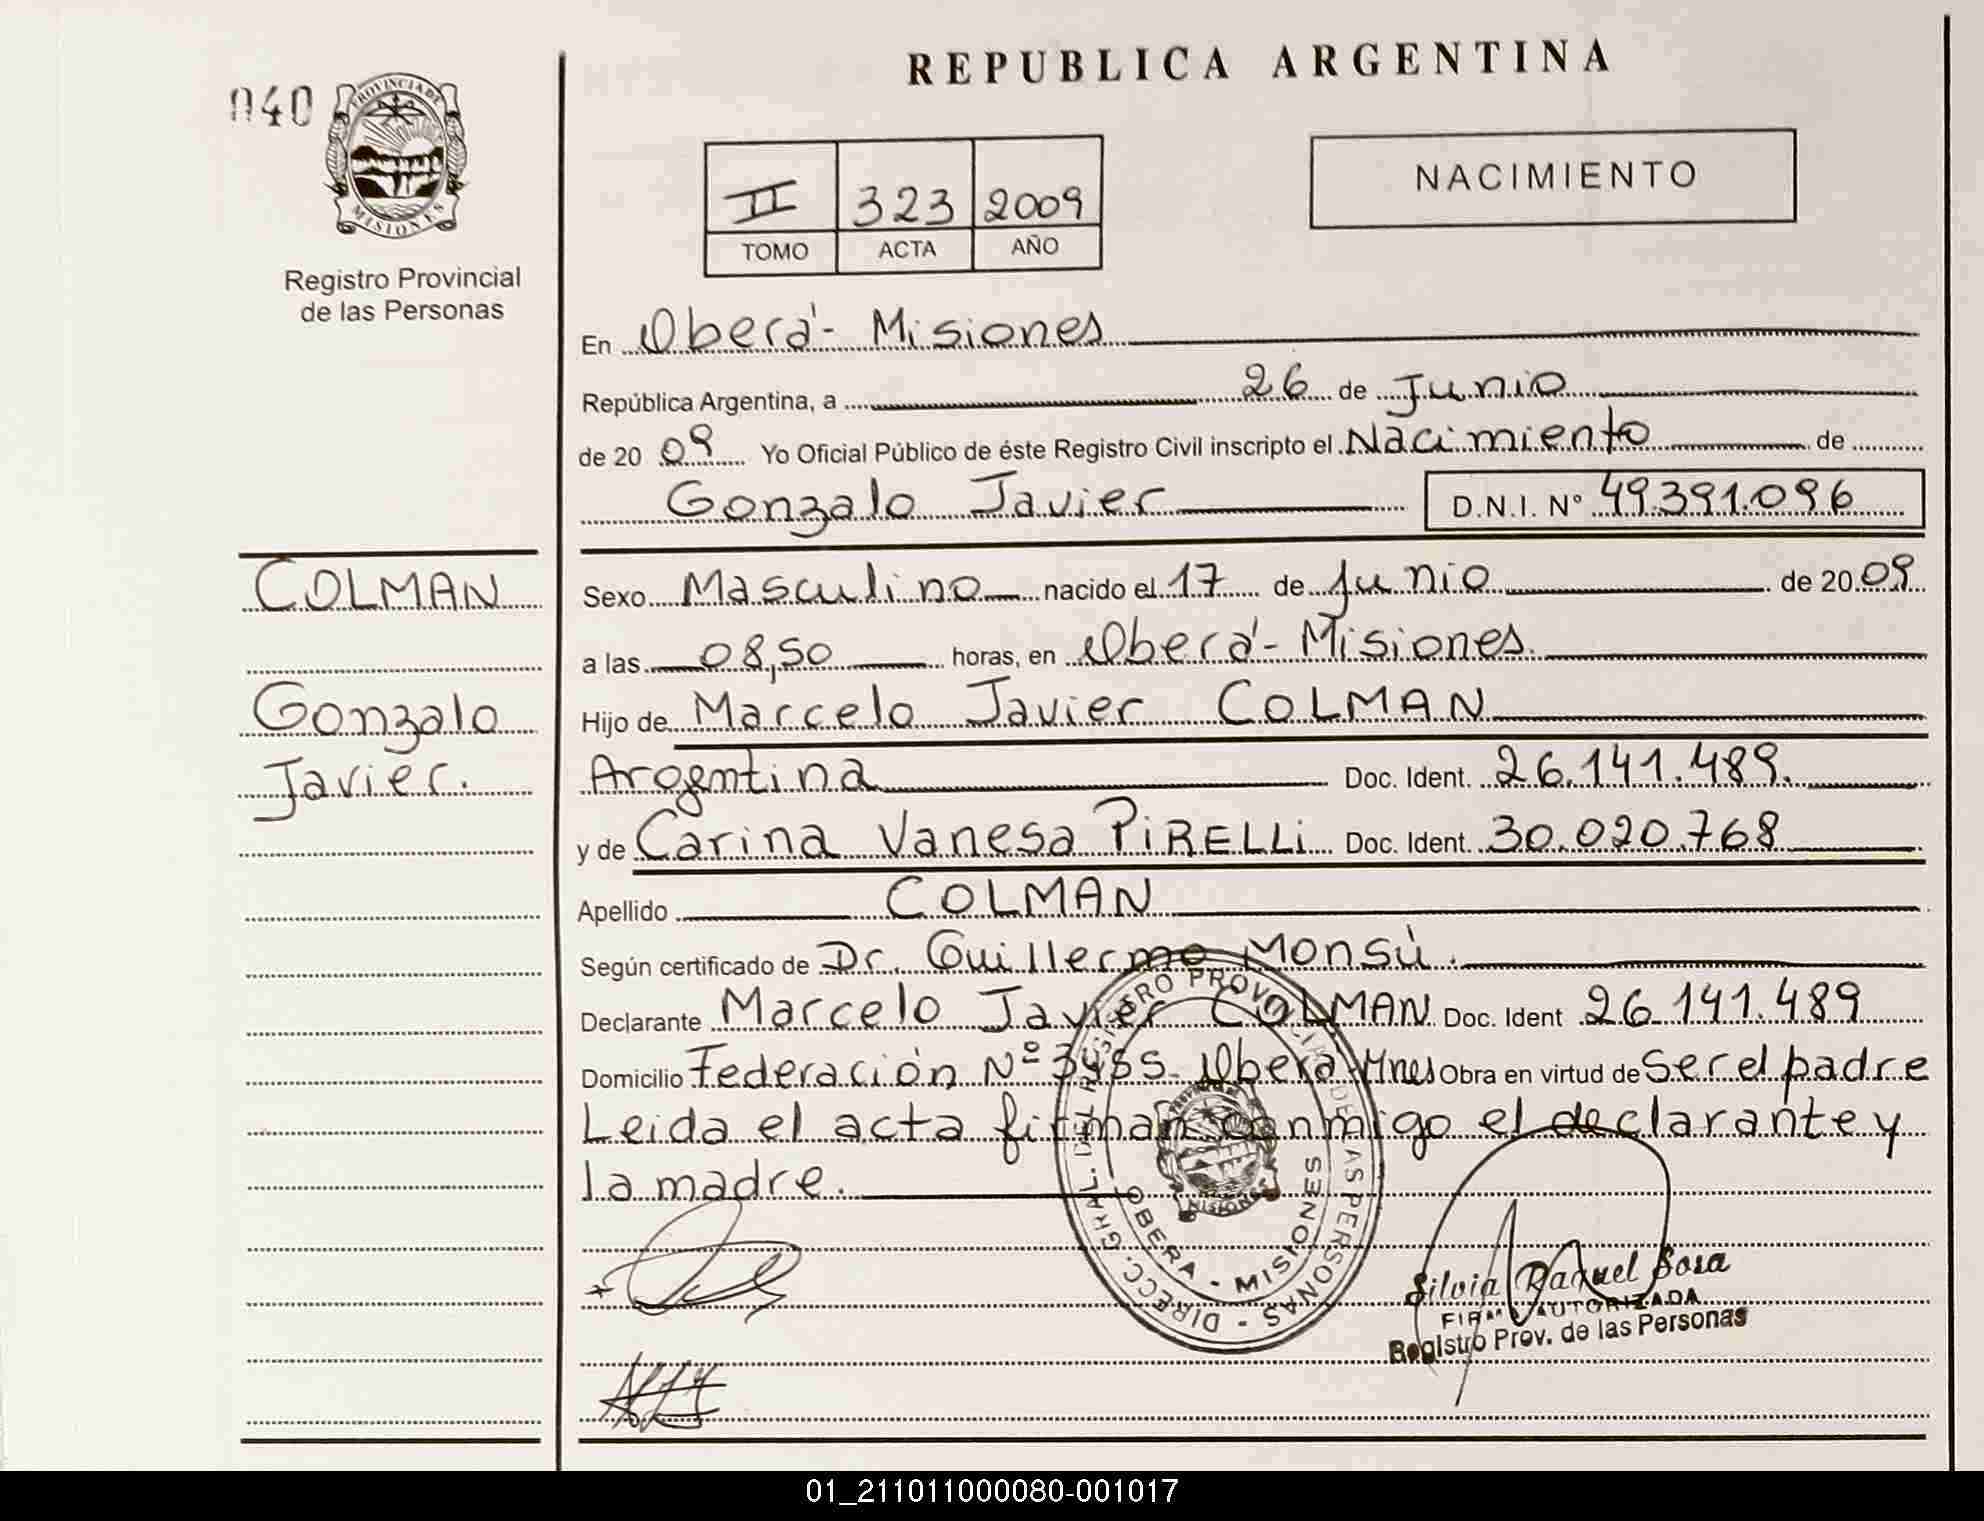 REPUBLICA ARGENTINA
040
PROVINCIA DE
MISIONES
Registro Provincial
de las Personas
NACIMIENTO
II 323 2009
TOMO ACTA AÑO
En Oberá - Misiones
República Argentina, a 26 de Junio
de 2009 Yo Oficial Público de éste Registro Civil inscripto el Nacimiento de
Gonzalo Javier D.N.I. Nº 49.391.096
COLMAN
Gonzalo
Javier.
Sexo Masculino nacido el 17 de Junio de 2009
a las 08,50 horas, en Oberá - Misiones.
Hijo de Marcelo Javier COLMAN
Argentina Doc. Ident. 26.141.489.
y de Carina Vanesa PiRELLi Doc. Ident. 30.020.768
Apellido COLMAN
Según certificado de Dr. Guillermo Monsù.
Declarante Marcelo Javier COLMAN Doc. Ident 26.141.489
Domicilio Federación Nº Oberá Mnes Obra en virtud de Ser el padre
Leida el acta firman conmigo el declarante y
la madre.
DIRECC. GRAL. DEL REGISTRO PROVINCIAL DE LAS PERSONAS -
OBERA - MISIONES
MISIONES
Silvia Raquel Sosa
FIRMA AUTORIZADA
Registro Prov. de las Personas
01_211011000080-001017